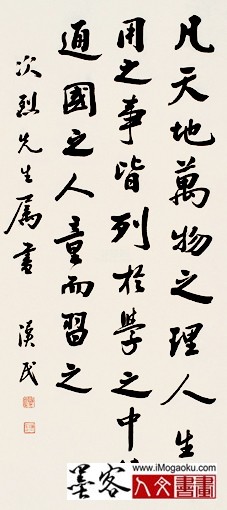 凡天地萬物之理人生
用之事皆列於學之中
通國之人童而習之
次烈先生屬書
漢民
www.iMogaoku.com
墨客人文書畫